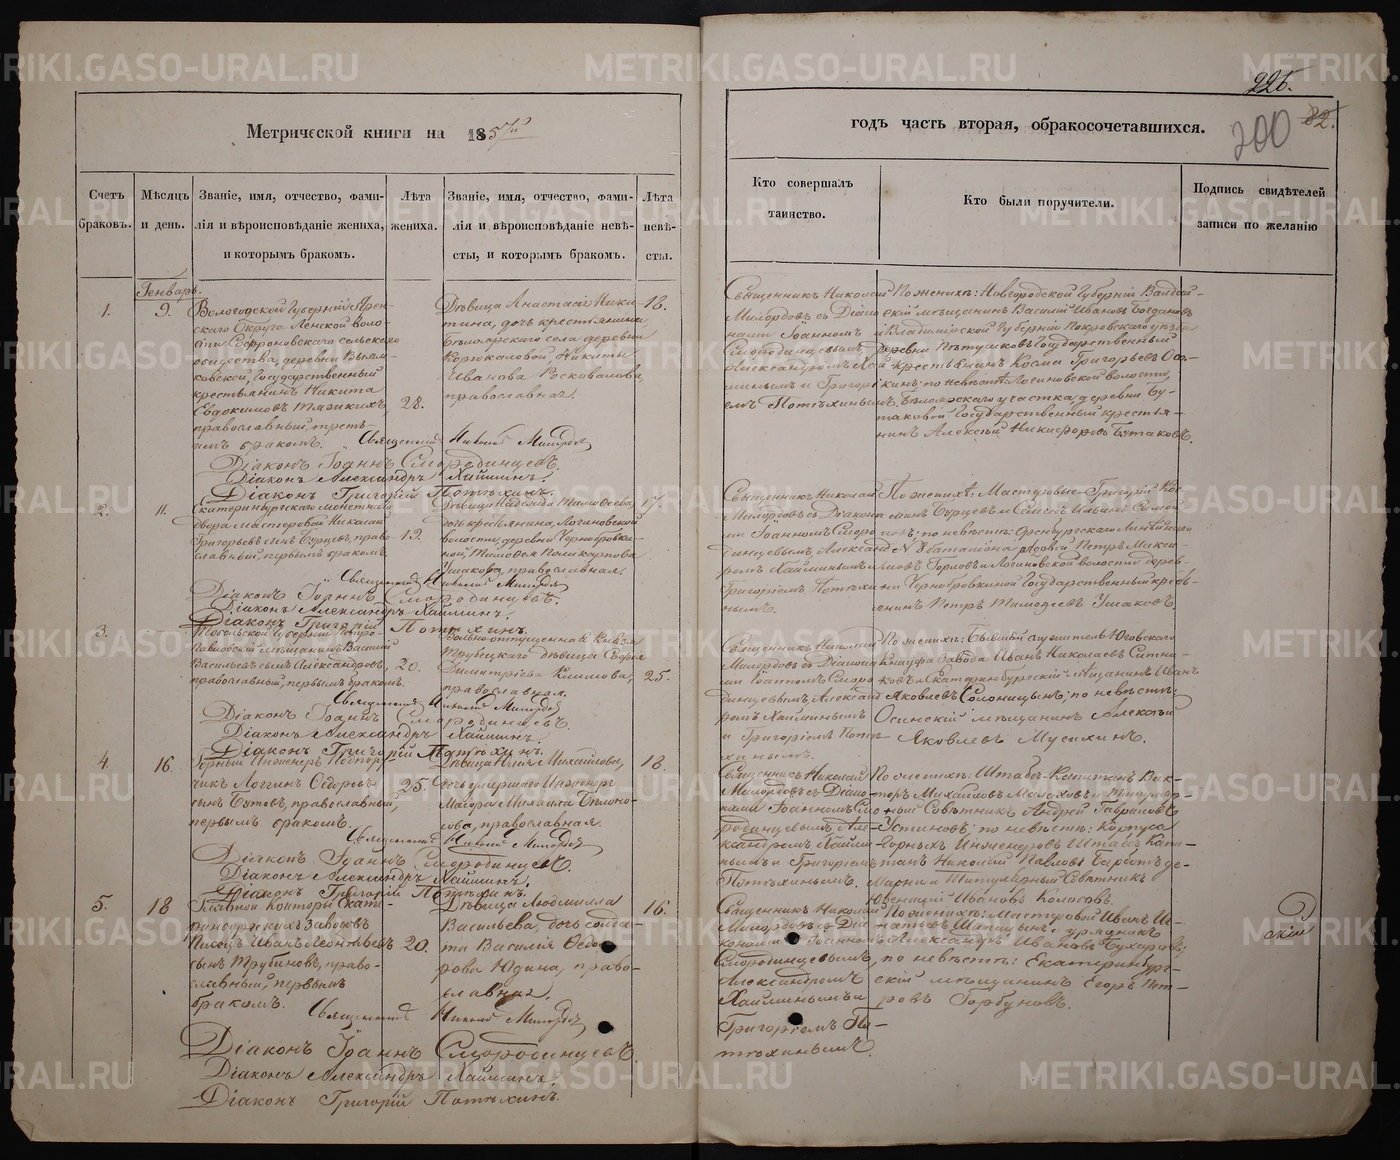 Метрической книги на 1857й
годъ часть вторая, обракосочетавшихся.
226.
200
82.
Счетъ браковъ.
Мѣсяцъ и день.
Званіе, имя, отчество, фами-
лія и вѣроисповѣданіе жениха,
и которымъ бракомъ.
Лѣта жениха.
Званіе, имя, отчество, фами-
лія и вѣроисповѣданіе невѣ-
сты, и которымъ бракомъ.
Лѣта невѣ-
сты.
Кто совершалъ
таинство.
Кто были поручители.
Подпись свидѣтелей
записи по желанію
Генварь.
1.
9.
Вологодской Губерніи Ярен-
скаго Округа Ленской воло-
сти Софроновскаго сельскаго
общества, деревни
Государственный
крестьянинъ Никита
Евдокимовъ
православный, треть-
имъ бракомъ.
28.
Дѣвица Анастасія Ники-
тина, дочь крестьянина
Бѣлоярскаго села деревни
Никиты
Иванова
православная.
18.
Священникъ Николай
Милордовъ съ Діако-
нами Іоанномъ
Смородинцевымъ,
Александромъ Хай-
минымъ и Григорі-
емъ Потѣхинымъ.
По женихѣ: Новгородской Губерніи Валдай-
скій мѣщанинъ Василій Ивановъ Богдановъ
и Владимірской Губерніи Покровскаго уѣзда
деревни Государственный
крестьянинъ Косма Григорьевъ
по невѣстѣ: Логиновской волости,
Бѣлоярскаго участка, деревни Бу-
таковой Государственный крестья-
нинъ Алексѣй Никифоровъ Бутаковъ.
Священникъ Николай Милордовъ
Діаконъ Іоаннъ Смородинцевъ.
Діаконъ Александръ Хайминъ.
Діаконъ Григорій Потѣхинъ.
2.
11.
Екатеринбургскаго монетнаго
двора мастеровой Николай
Григорьевъ сынъ Бурцевъ, право-
славный, первымъ бракомъ.
19.
Дѣвица Надежда Тимофеева,
дочь крестьянина, Логиновской
волости, деревни Чернобровки-
ной, Тимофея Поликарпова
Ушакова, православная.
17.
Священникъ Николай
Милордовъ съ Діакона-
ми Іоанномъ Сморо-
динцевымъ, Александ-
ромъ Хайминымъ и
Григоріемъ Потѣхи-
нымъ.
По женихѣ: Мастеровые Григорій
Бурцевъ и
по невѣстѣ: Оренбургскаго Линѣйнаго
N 8 баталіона Петръ Макси-
мовъ Горловъ и Логиновской волости дерев-
ни Чернобровкиной Государственный кресть-
янинъ Петръ Тимофеевъ Ушаковъ.
Священникъ Николай Милордовъ
Діаконъ Іоаннъ Смородинцевъ.
Діаконъ Александръ Хайминъ.
Діаконъ Григорій Потѣхинъ.
3.
Тобольской Губерніи Петро-
павловскій мѣщанинъ Василій
Васильевъ сынъ Александровъ,
православный, первымъ бракомъ.
20.
Вольноотпущенная Князя
Трубецкаго дѣвица
Димитріева Климова,
православная.
25.
Священникъ Николай
Милордовъ съ Діакона-
ми Іоанномъ Сморо-
динцевымъ, Александ-
ромъ Хайминымъ
и Григоріемъ Потѣ-
хинымъ.
По женихѣ: Бывшій служитель Юговскаго
Кнауфа завода Иванъ Николаевъ Ситни-
ковъ и Екатеринбургскій Иванъ
Яковлевъ Солоницынъ; по невѣстѣ:
Осинскій мѣщанинъ Алексѣй
Яковлевъ Мусихинъ.
Священникъ Николай Милордовъ
Діаконъ Іоаннъ Смородинцевъ.
Діаконъ Александръ Хайминъ.
Діаконъ Григорій Потѣхинъ.
4.
16.
Горный Инженеръ Поспору-
чикъ Логгинъ Ѳедоровъ
сынъ Бутовъ, православный,
первымъ бракомъ.
25.
Дѣвица Юлія Михайлова,
дочь умершаго Инженеръ
Маіора Михаила
православная.
18.
Священникъ Николай
Милордовъ съ Діако-
нами Іоанномъ Смо-
родинцевымъ, Але-
ксандромъ Хайми-
нымъ и Григоріемъ
Потѣхинымъ.
По женихѣ: Штабсъ-Капитанъ Вик-
торъ Михайловъ Малаховъ и Титуляр-
ный Совѣтникъ Андрей Гавриловъ
Устиновъ; по невѣстѣ: Корпуса
Горныхъ Инженеровъ Штабсъ Капи-
танъ Николай Павловъ Барботъ де-
Марни и Титулярный Совѣтникъ
Ивановъ Колосовъ.
Священникъ Николай Милордовъ
Діаконъ Іоаннъ Смородинцевъ.
Діаконъ Александръ Хайминъ.
Діаконъ Григорій Потѣхинъ.
5.
18
Главной Конторы Екате-
ринбургскихъ Заводовъ
Писецъ Иванъ Леонтьевъ
сынъ Трубиновъ, право-
славный, первымъ
бракомъ.
20.
Дѣвица Людмилла
Васильева, дочь солда-
та Василія Ѳедо-
рова Юдина, право-
славная.
16.
Священникъ Николай
Милордовъ съ Діа-
конами Іоанномъ
Смородинцевымъ,
Александромъ
Хайминымъ и
Григоріемъ По-
тѣхинымъ.
По женихѣ: Мастеровой Иванъ Иг-
натьевъ и урядникъ
Александръ Ивановъ Бухаровъ;
по невѣстѣ: Екатеринбург-
скій мѣщанинъ Егоръ Пет-
ровъ Горбуновъ.
Священникъ Николай Милордовъ
Діаконъ Іоаннъ Смородинцевъ.
Діаконъ Александръ Хайминъ.
Діаконъ Григорій Потѣхинъ.
METRIKI.GASO-URAL.RU